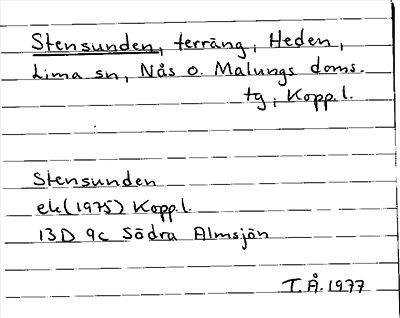 Stensunden, terräng, Heden,
Lima sn, Nås o. Malungs doms.
tg, Kopp.l.
Stensunden
ek(1975) Kopp.l.
13D 9c Södra Almsjön
T.Å.1977